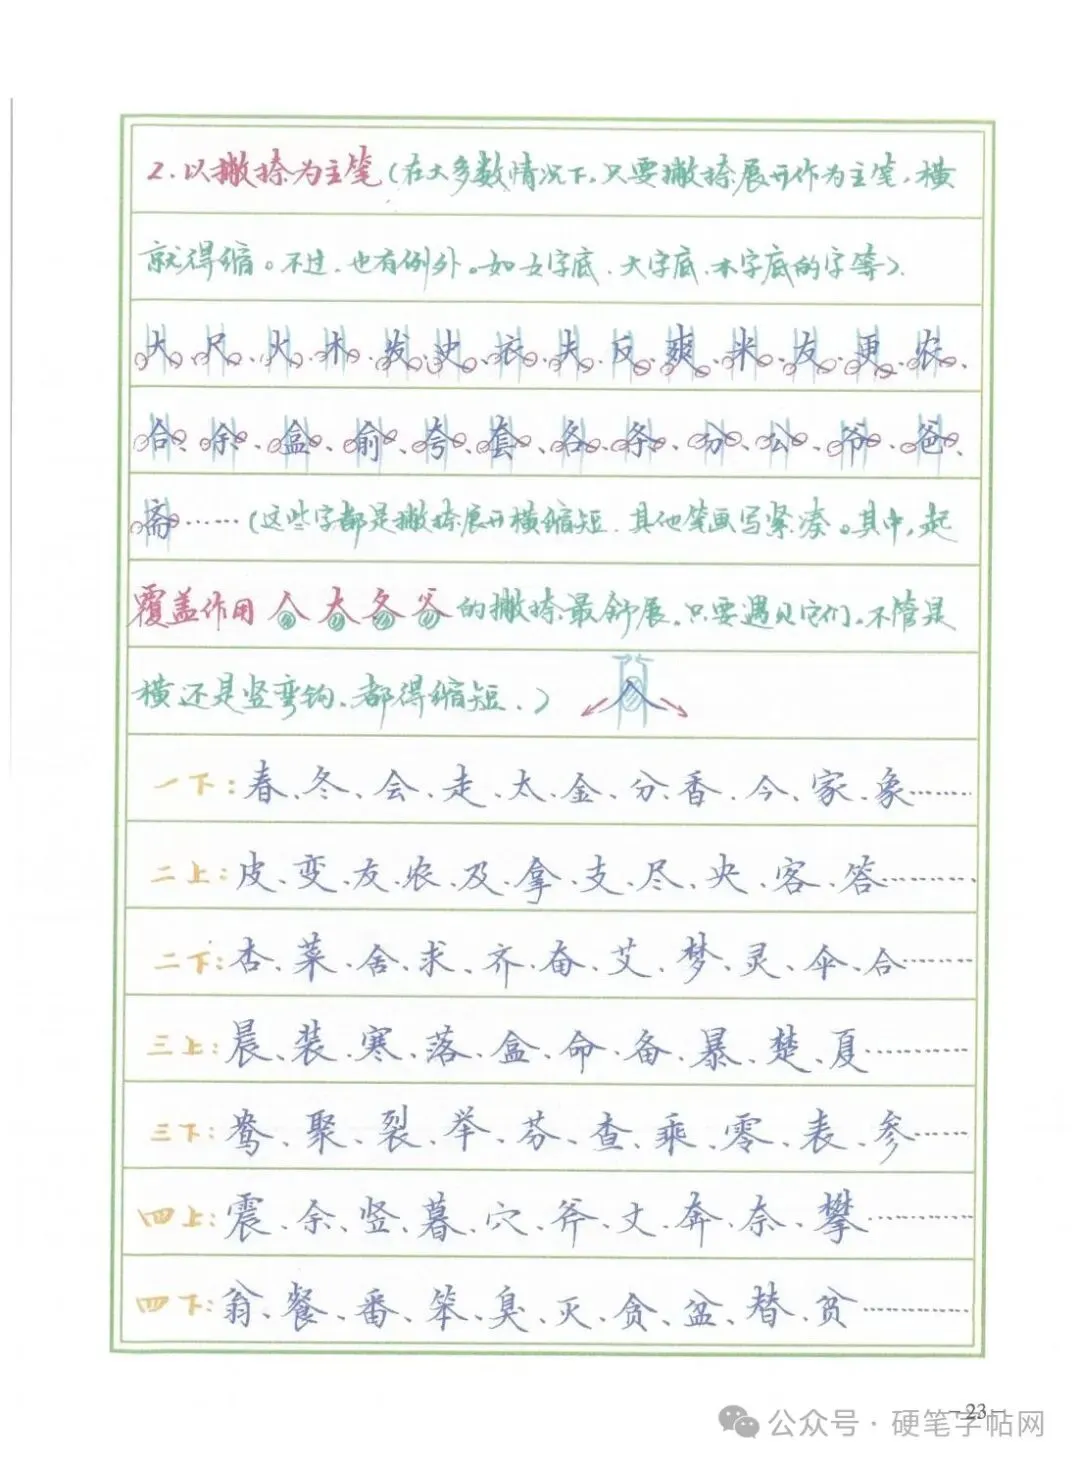 2.以撇捺为主笔(在大多数情况下,只要撇捺展开作为主笔,横
就得缩。不过,也有例外。如女字底、大字底、木字底的字等)。
大、尺、火、木、发、史、衣、夫、反、爽、米、友、更、农、
合、余、盒、俞、夸、套、各、条、分、公、爷、爸、
斋……(这些字都是撇捺展开横缩短,其他笔画写紧凑。其中,起
覆盖作用人大夂父的撇捺最舒展,只要遇见它们,不管是
横还是竖弯钩,都得缩短。)
一下:春、冬、会、走、太、金、分、香、今、家、象……
二上:皮、变、友、农、及、拿、支、尽、央、客、答……
二下:杏、菜、舍、求、齐、奋、艾、梦、灵、伞、合……
三上:晨、装、寒、落、盒、命、备、暴、楚、夏……
三下:鸳、聚、裂、举、芬、查、乘、零、表、参……
四上:震、余、竖、暮、穴、斧、丈、奔、奈、攀……
四下:翁、餐、番、笨、臭、灭、贪、盆、替、贫……
-23-
公众号·硬笔字帖网